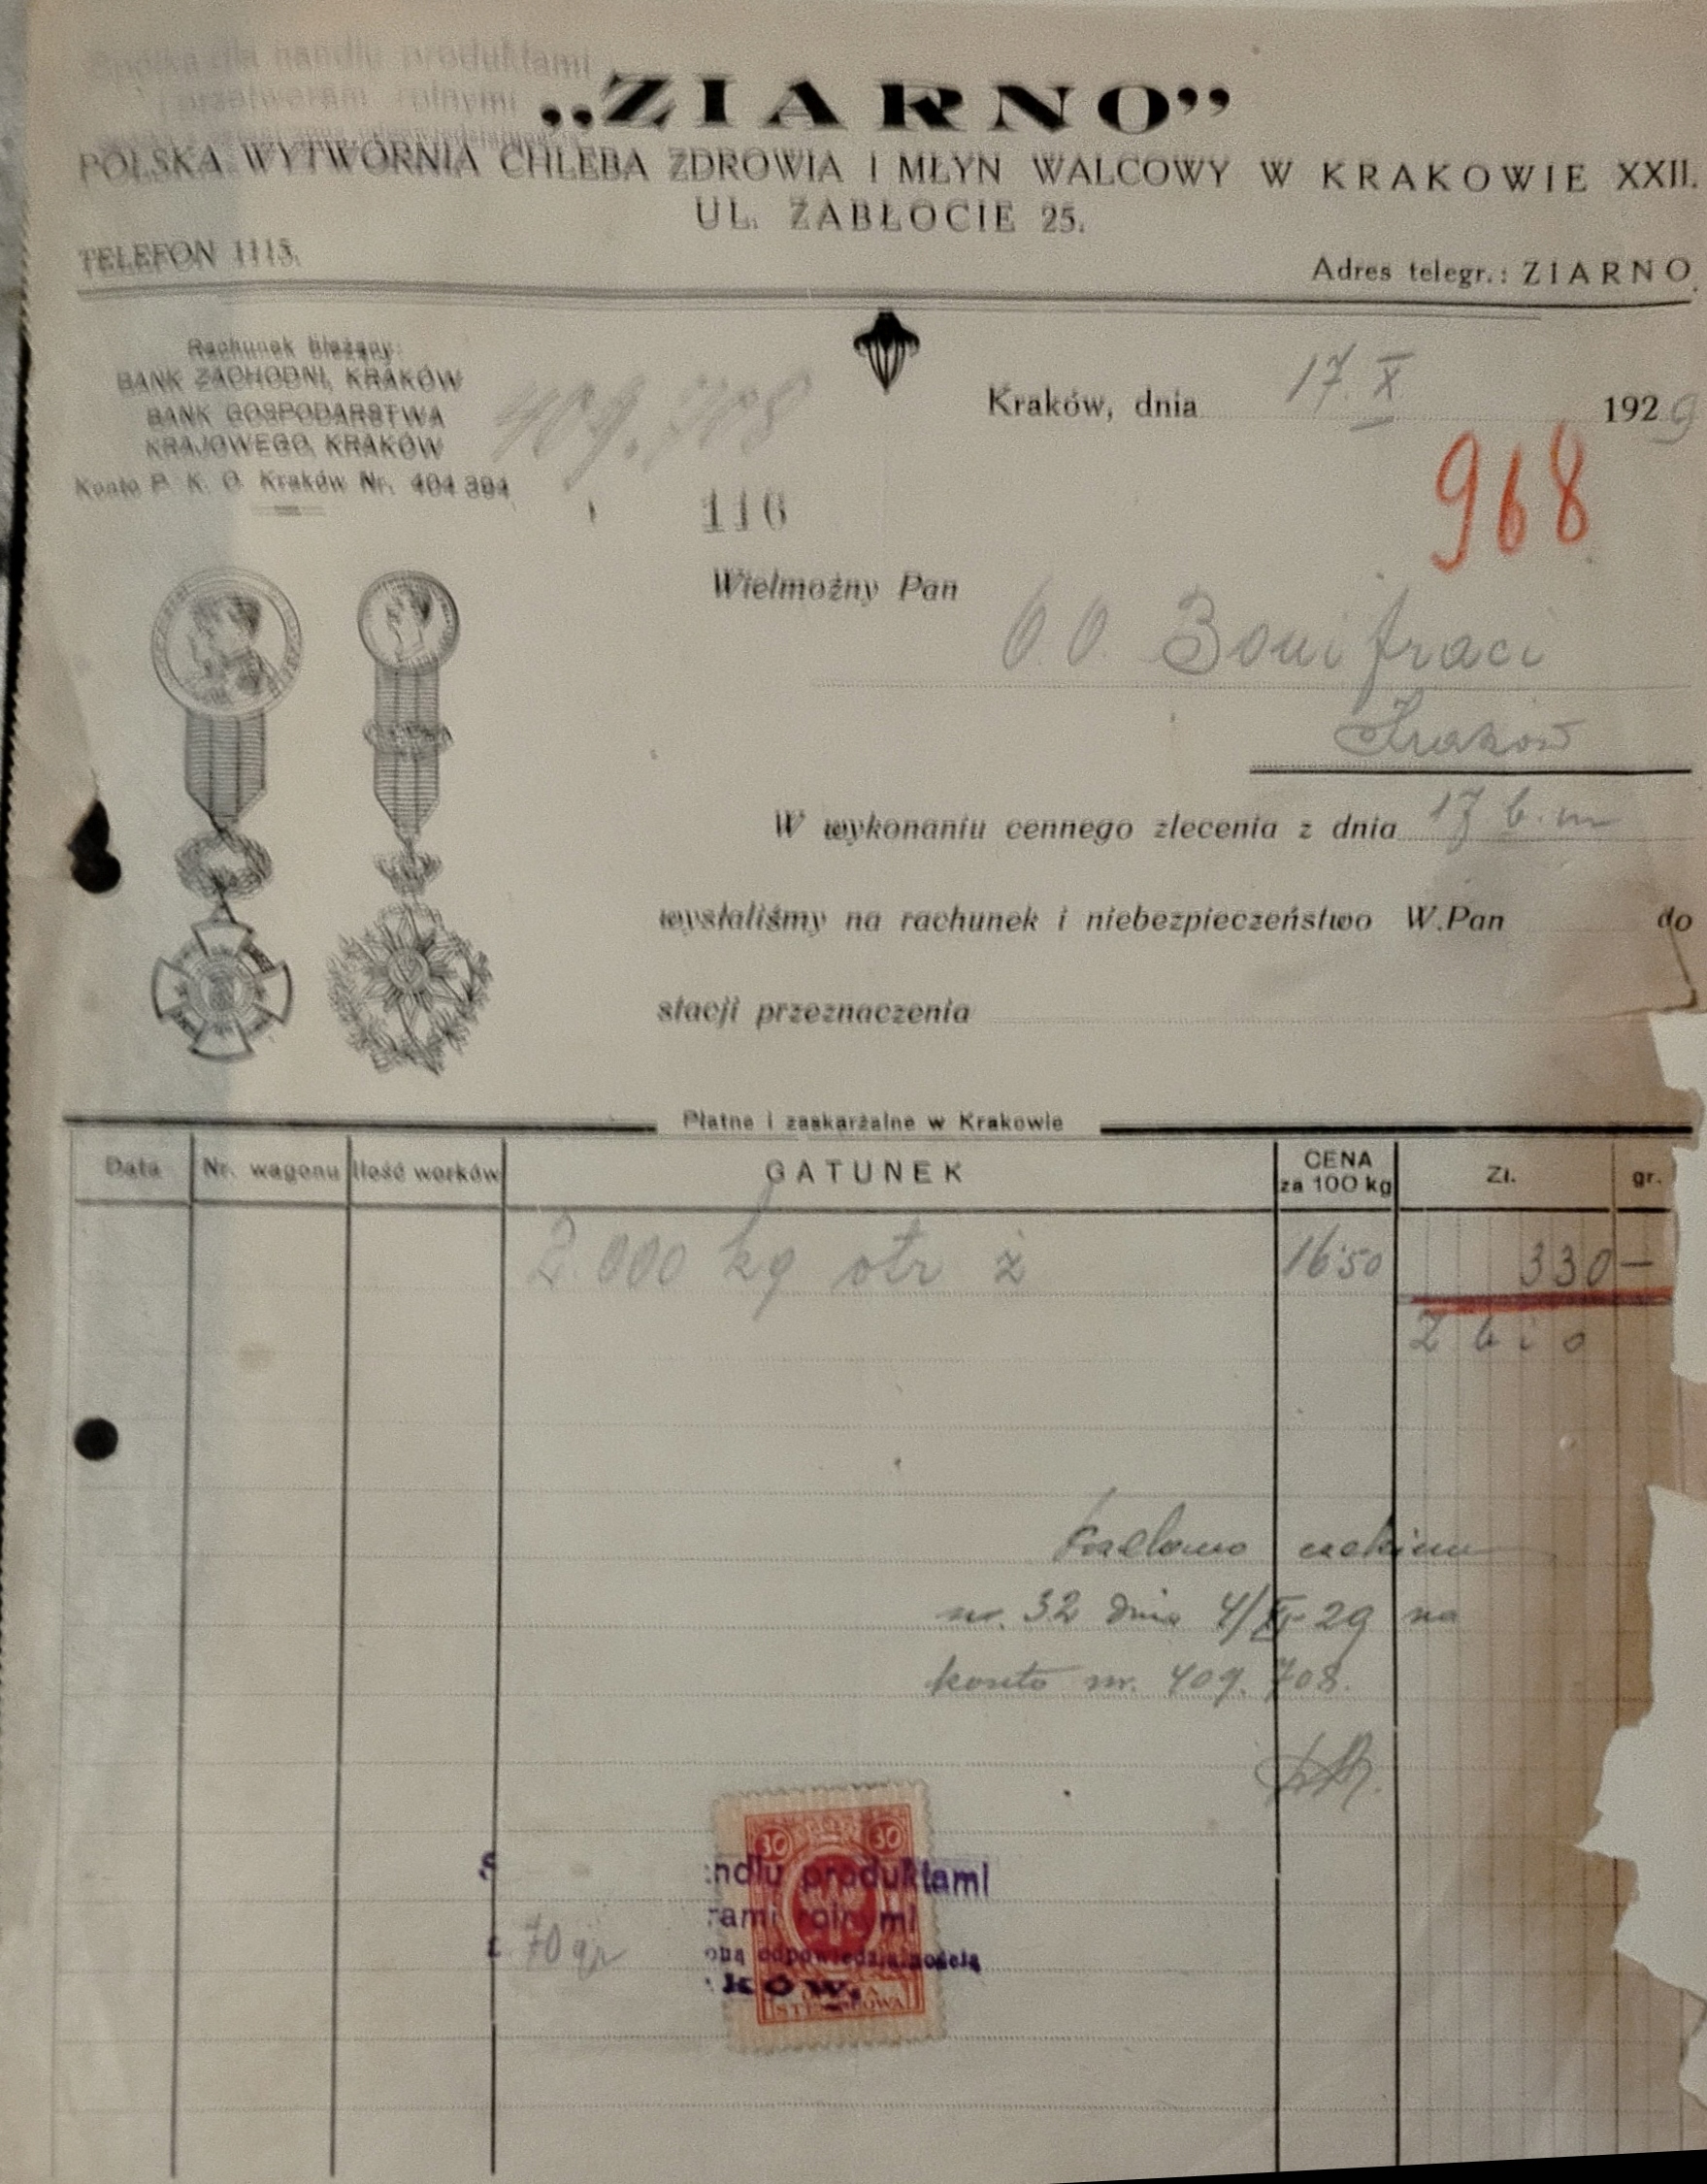 Spółka dla handlu produktami
i przetworami rolnymi
„ZIARNO”
POLSKA WYTWÓRNIA CHLEBA ZDROWIA I MŁYN WALCOWY W KRAKOWIE XXII.
UL. ZABŁOCIE 25.
TELEFON 1115.
Adres telegr.: ZIARNO.
Rachunek bieżący:
BANK ZACHODNI, KRAKÓW
BANK GOSPODARSTWA
KRAJOWEGO, KRAKÓW
Konto P. K. O. Kraków Nr. 404.394
409.708
Kraków, dnia 17. X 1929
968
116
Wielmożny Pan
O.O. Bonifraci
Kraków
W wykonaniu cennego zlecenia z dnia 17 b.m
wysłaliśmy na rachunek i niebezpieczeństwo W.Pan do
stacji przeznaczenia
Płatne i zaskarżalne w Krakowie
Data Nr. wagonu Ilość worków GATUNEK CENA za 100 kg Zł. gr.
2.000 kg otr ż 16.50 330 —
nr. 32 dnia 4/XI-29 na
konto nr. 409.708.
30 30
ndlu produktami
rami rolnymi
oną odpowiedzialnością
70 gr
KÓW.
STEMPLOWA